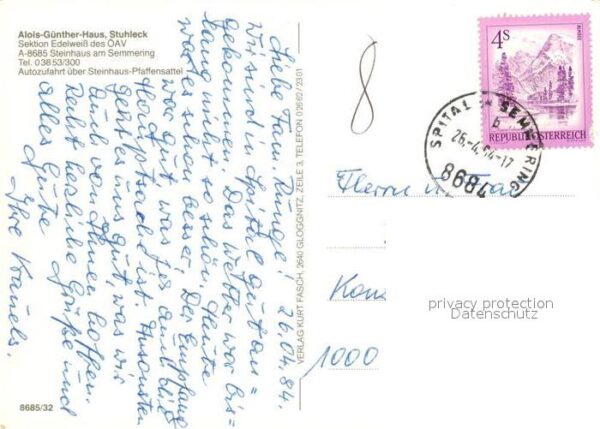 Alois-Günther-Haus, Stuhleck
Sektion Edelweiß des ÖAV
A-8685 Steinhaus am Semmering
Tel. 0 38 53/300
Autozufahrt über Steinhaus-Pfaffensattel
Liebe Fam. Runge! 26.04.84.
Wir sind in Spital gut an=
gekommen. Das Wetter war bis=
lang nicht so schön. Heute
war es schon besser. Der Empfang
war gut, was ja
Hauptsache ist. Ansonsten
geht es uns gut, was wir
auch von Ihnen hoffen.
Recht herzliche Grüße und
alles Gute
Ihre
8685/32
VERLAG KURT FASCH, 2640 GLOGGNITZ, ZEILE 3, TELEFON 0 26 62 / 23 01
8
4S
ALMSEE
REPUBLIK ÖSTERREICH
SPITAL AM SEMMERING
b
26.-4.84-17
8684
Herrn u. Fam
privacy protection
Datenschutz
1000